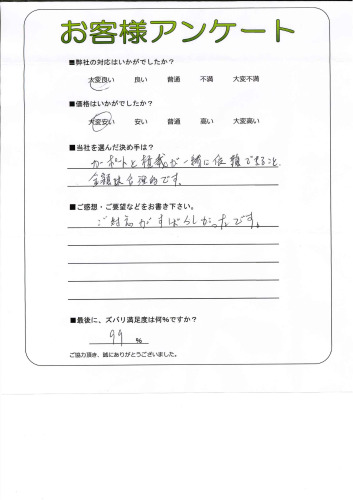 お客様アンケート
■弊社の対応はいかがでしたか?
大変良い 良い 普通 不満 大変不満
■価格はいかがでしたか?
大変安い 安い 普通 高い 大変高い
■当社を選んだ決め手は?
カーポートと積載が一緒に依頼できること
金額は合理的です。
■ご感想・ご要望などをお書き下さい。
ご対応がすばらしかったです。
■最後に、ズバリ満足度は何%ですか?
99 %
ご協力頂き、誠にありがとうございました。